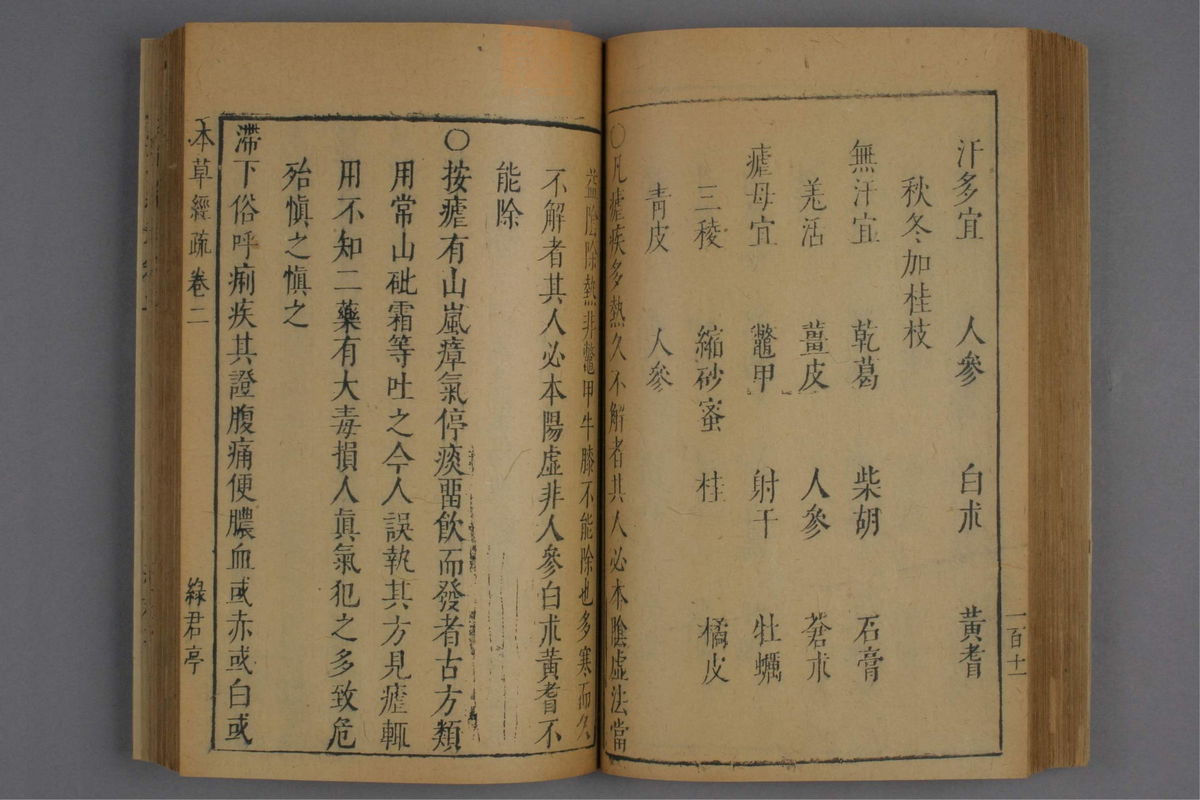 汗多宜 人參 白朮 黃耆
秋冬加桂枝
無汗宜 乾葛 柴胡 石膏
羌活 薑皮 人參 蒼朮
瘧母宜 鱉甲 射干 牡蠣
三稜 縮砂蜜 桂 橘皮
青皮 人參
○凡瘧疾多熱久不解者其人必本陰虛法當
益陰除熱非鱉甲牛膝不能除也多寒而久
不解者其人必本陽虛非人參白朮黃耆不
能除
○按瘧有山嵐瘴氣停痰畱飲而發者古方類
用常山砒霜等吐之今人誤執其方見瘧輒
用不知二藥有大毒損人眞氣犯之多致危
殆愼之愼之
滯下俗呼痢疾其證腹痛便膿血或赤或白或
本草經疏 卷二 綠君亭
一百十一